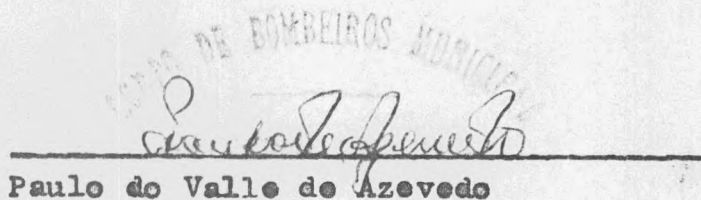 CORPO DE BOMBEIROS MUNICIPAL
Paulo do Valle de Azevedo